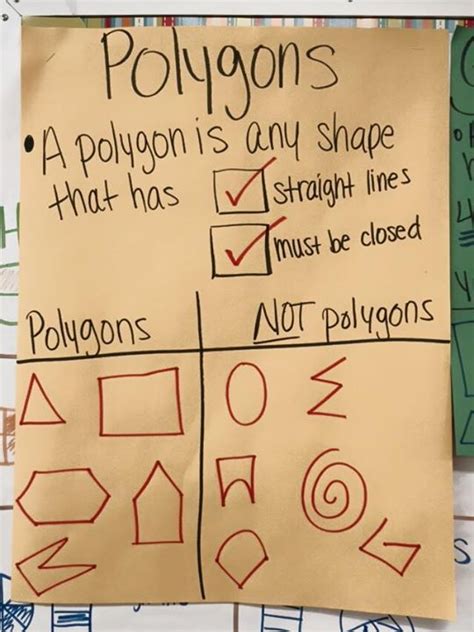 Polygons
• A polygon is any shape
that has
straight lines
must be closed
Polygons
NOT polygons